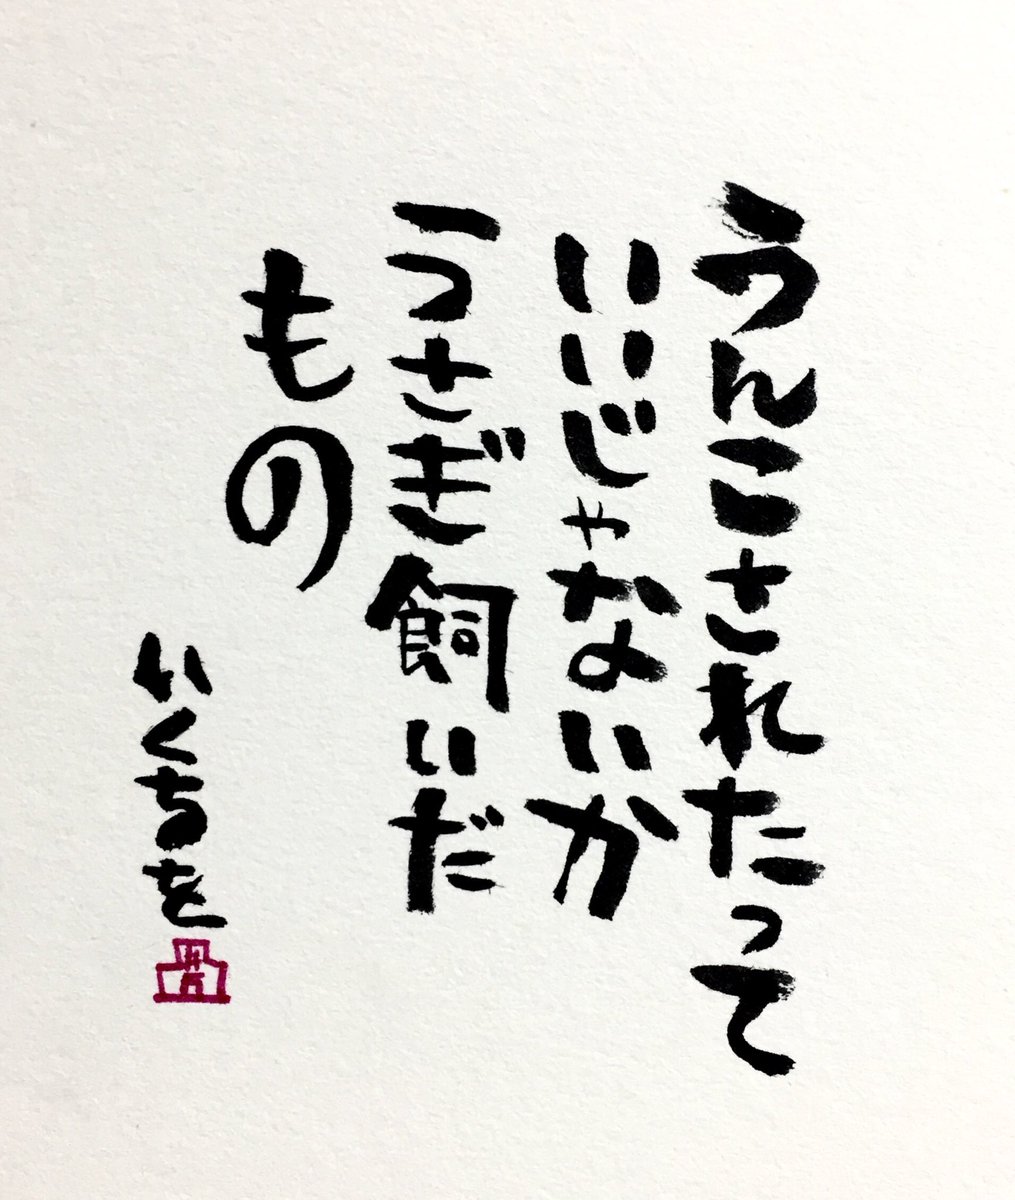 うんこされたって
いいじゃないか
うさぎ飼いだ
もの
いくちを